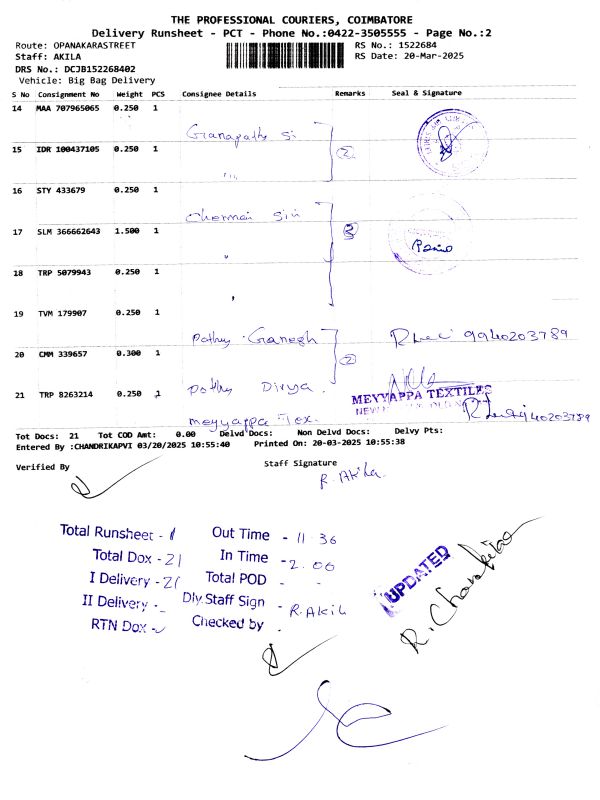 THE PROFESSIONAL COURIERS, COIMBATORE
Delivery Runsheet - PCT - Phone No.:0422-3505555 - Page No.:2
Route: OPANAKARASTREET RS No.: 1522684
Staff: AKILA RS Date: 20-Mar-2025
DRS No.: DCJB152268402
Vehicle: Big Bag Delivery
S No Consignment No Weight PCS Consignee Details Remarks Seal & Signature
14 MAA 707965065 0.250 1
Ganapathy Si
15 IDR 100437105 0.250 1 2
16 STY 433679 0.250 1
Chennai Sili
17 SLM 366662643 1.500 1 3
18 TRP 5079943 0.250 1
19 TVM 179907 0.250 1
Pothys Ganesh 9940203789
20 CMM 339657 0.300 1 2
Pothy Divya.
21 TRP 8263214 0.250 1 MEYYAPPA TEXTILES
meyyappa Tex. 9940203789
Tot Docs: 21 Tot COD Amt: 0.00 Delvd Docs: Non Delvd Docs: Delvy Pts:
Entered By :CHANDRIKAPVI 03/20/2025 10:55:40 Printed On: 20-03-2025 10:55:38
Verified By Staff Signature
R. Akila.
Total Runsheet - 1 Out Time - 11.36
Total Dox - 21 In Time - 2.06
I Delivery - 21 Total POD -
II Delivery - Dly.Staff Sign - R.AKIL
RTN Dox - Checked by
UPDATED